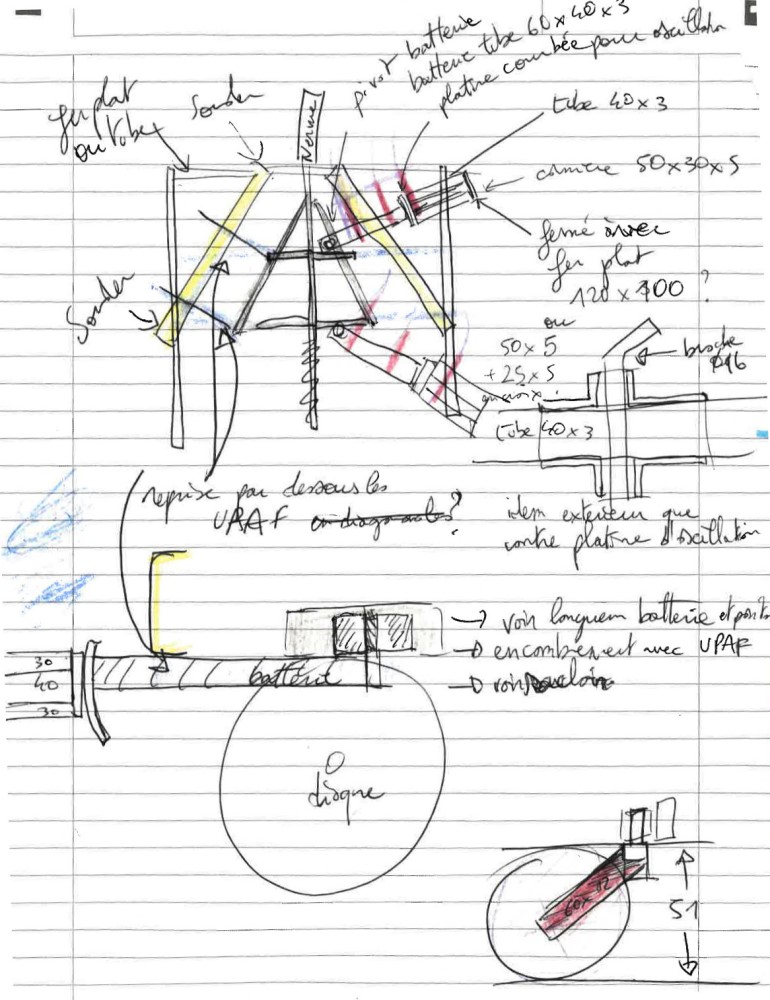 pivot batterie
batterie tube 60x40x3
platine courbée pour oscillation
fer plat
ou tube
Souder
tube 40x3
cornière 50x30x5
fermé avec
fer plat
120x100 ?
ou
50x5
+25x5
Souder
broche
tube 40x3
reprise par dessous les
UPAF en diagonales ?
idem exterieur que
contre platine d'oscillation
→ voir longueur batterie et
→ encombrement avec UPAF
→ voir
30
40
30
batterie
disque
51